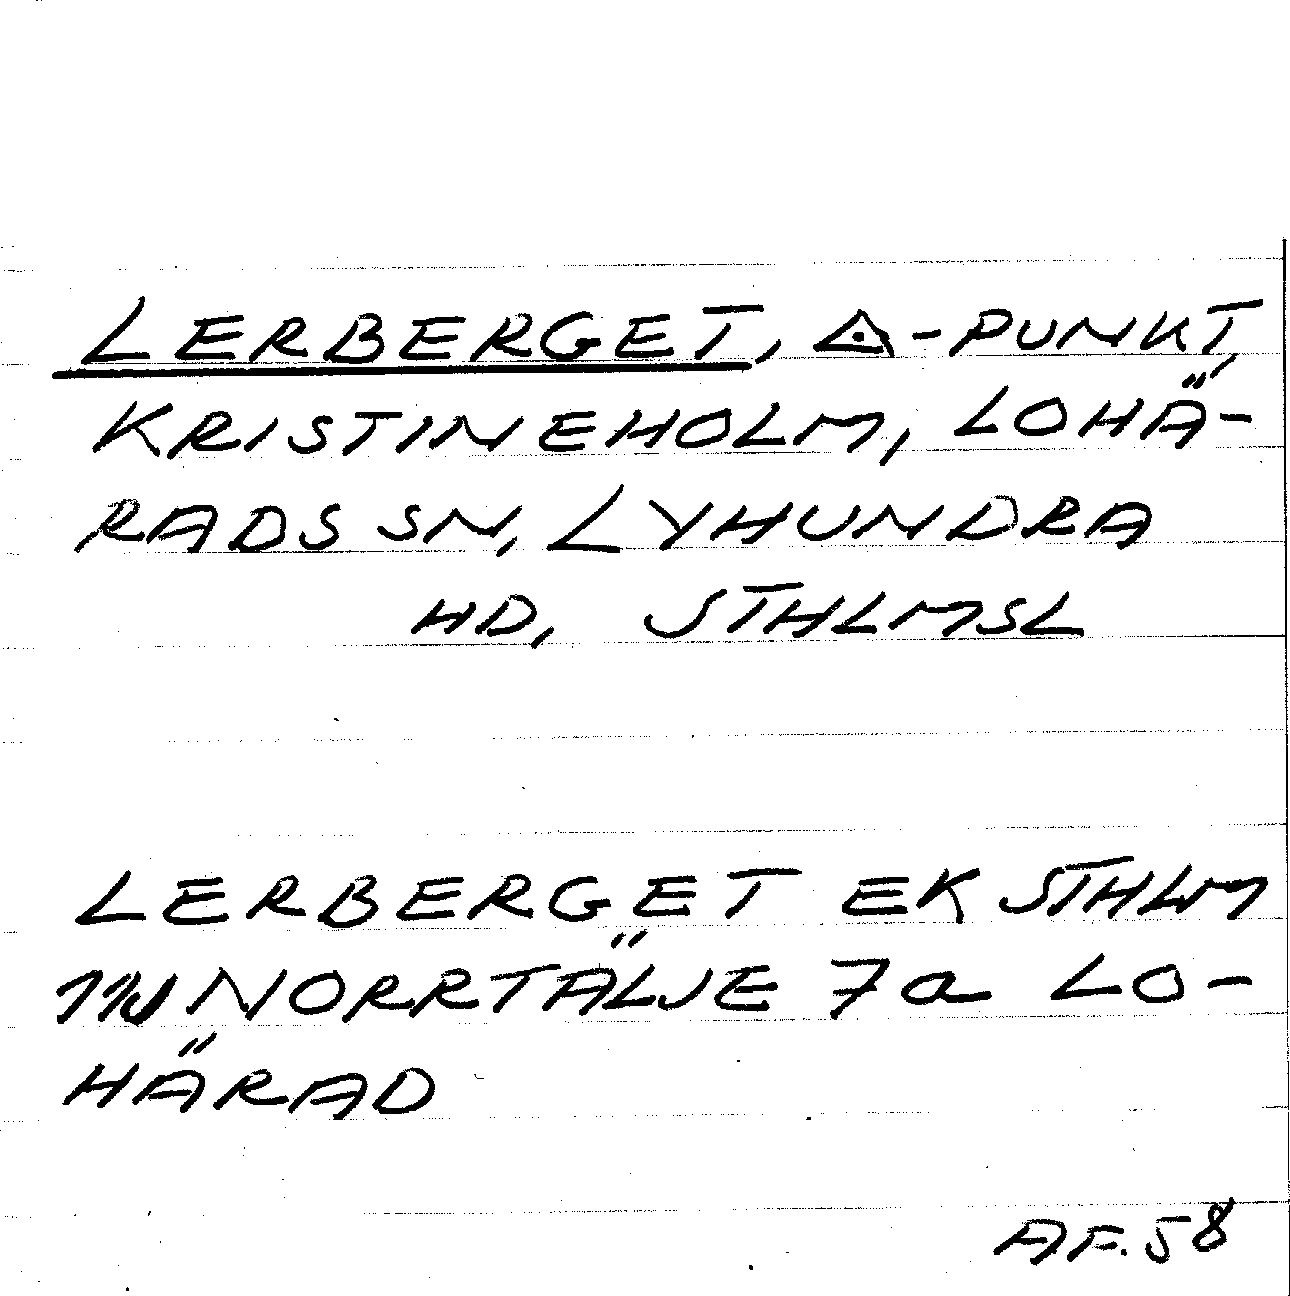 LERBERGET, ◬-PUNKT,
KRISTINEHOLM, LOHÄ-
RADS SN, LYHUNDRA
HD, STHLMSL
LERBERGET EK STHLM
NORRTÄLJE 7a LO-
HÄRAD
AF. 58